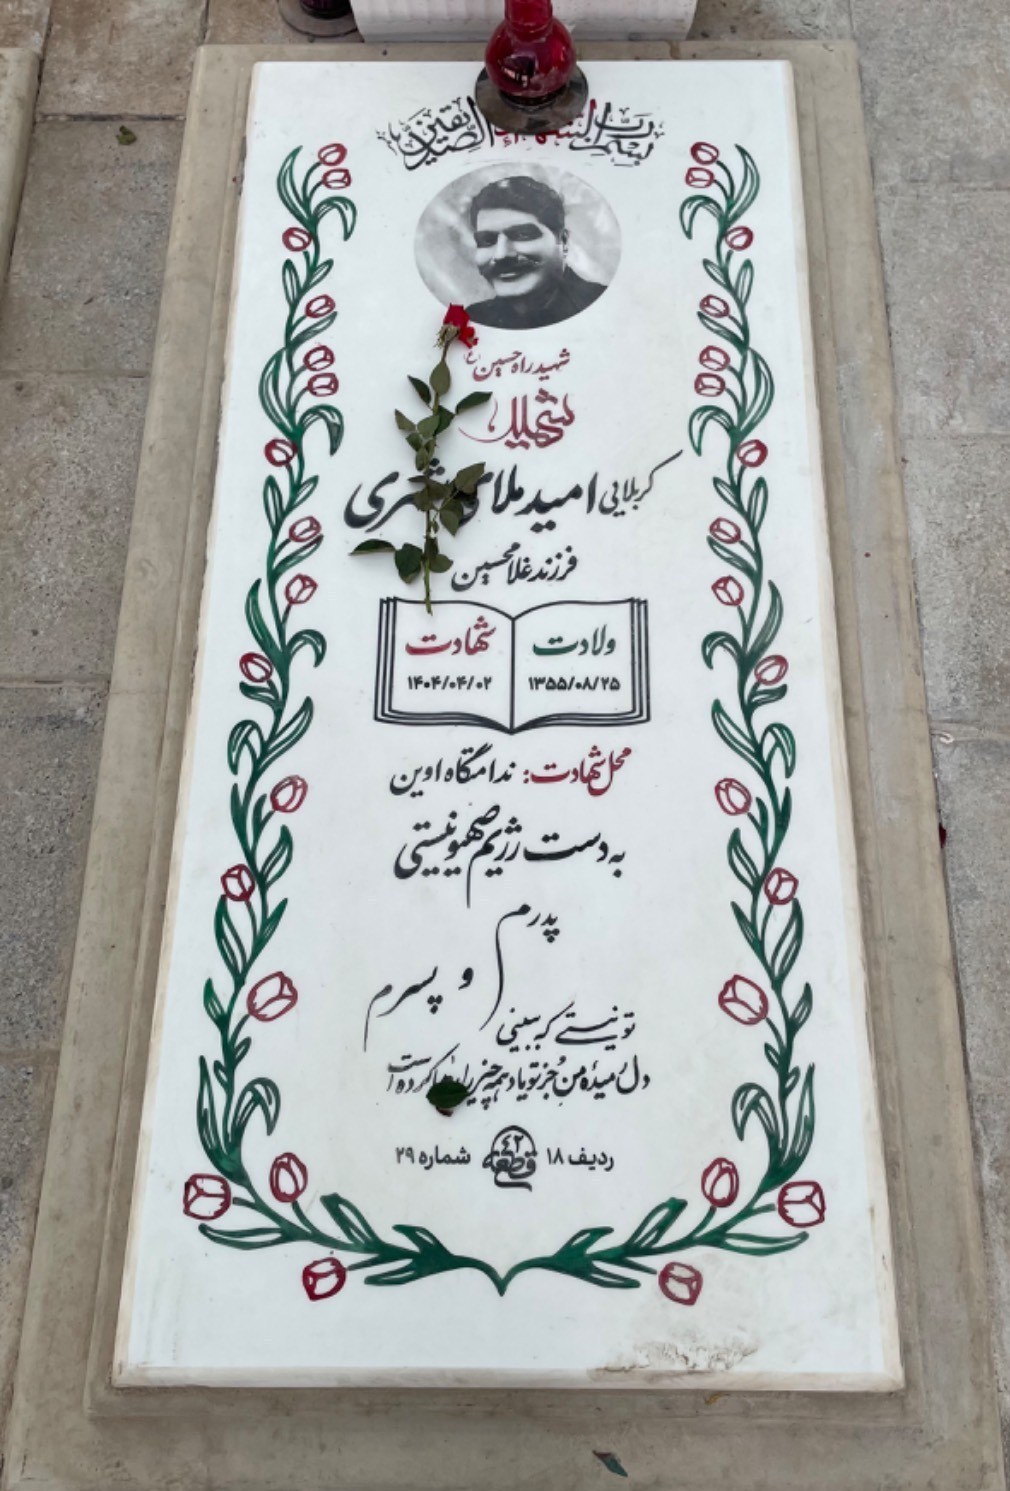 بسم رب الشهداء و الصدیقین
شهید راه حسین (ع)
شهید
کربلایی امید ملای شهری
فرزند غلامحسین
ولادت
۱۳۵۵/۰۸/۲۵
شهادت
۱۴۰۴/۰۴/۰۲
محل شهادت: ندامتگاه اوین
به دست رژیم صهیونیستی
پدرم
و
پسرم
تو نیستی که ببینی
دل رمیدهٔ من جز تو یاد همه چیز را رها کرده است
ردیف ۱۸
قطعه ۴۲
شماره ۲۹